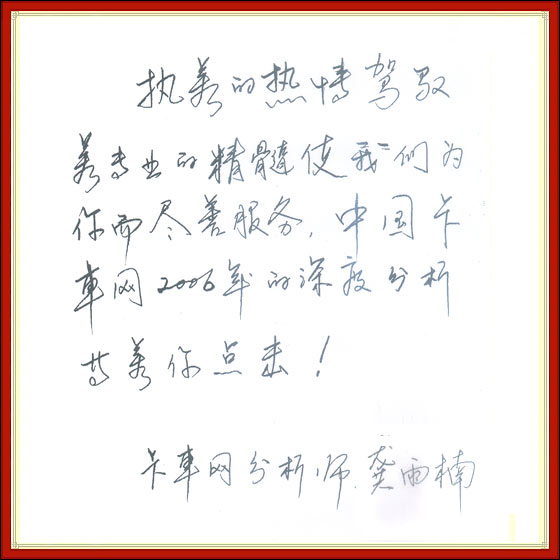 执着的热情驾驭
着专业的精髓使我们为
你而尽善服务，中国卡
車网2006年的深度分析
等着你点击！
卡車网分析师 龚雨楠